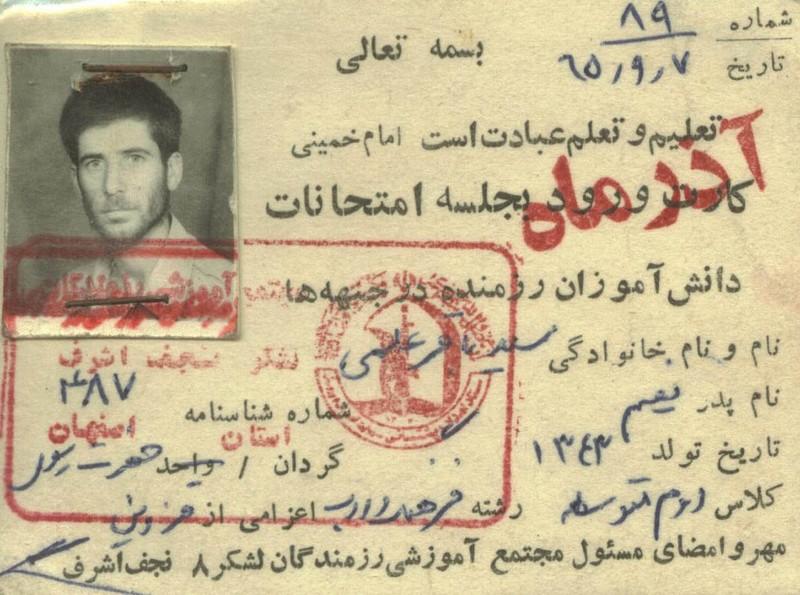 شماره ۸۹
بسمه تعالی
تاریخ ۶۵٫۹٫۷
تعلیم و تعلم عبادت است امام خمینی
آذر ماه
کارت ورود بجلسه امتحانات
دانش آموزان رزمنده در جبهه‌ها
مجتمع آموزشی رزمندگان
لشکر نجف اشرف
استان اصفهان
نام و نام خانوادگی سید باقر علمی
نام پدر
شماره شناسنامه ۴۸۷
تاریخ تولد ۱۳۴۳
گردان / واحد حضرت رسول
کلاس دوم متوسطه رشته فرهنگ و ادب اعزامی از قزوین
مهر و امضای مسئول مجتمع آموزشی رزمندگان لشکر ۸ نجف اشرف